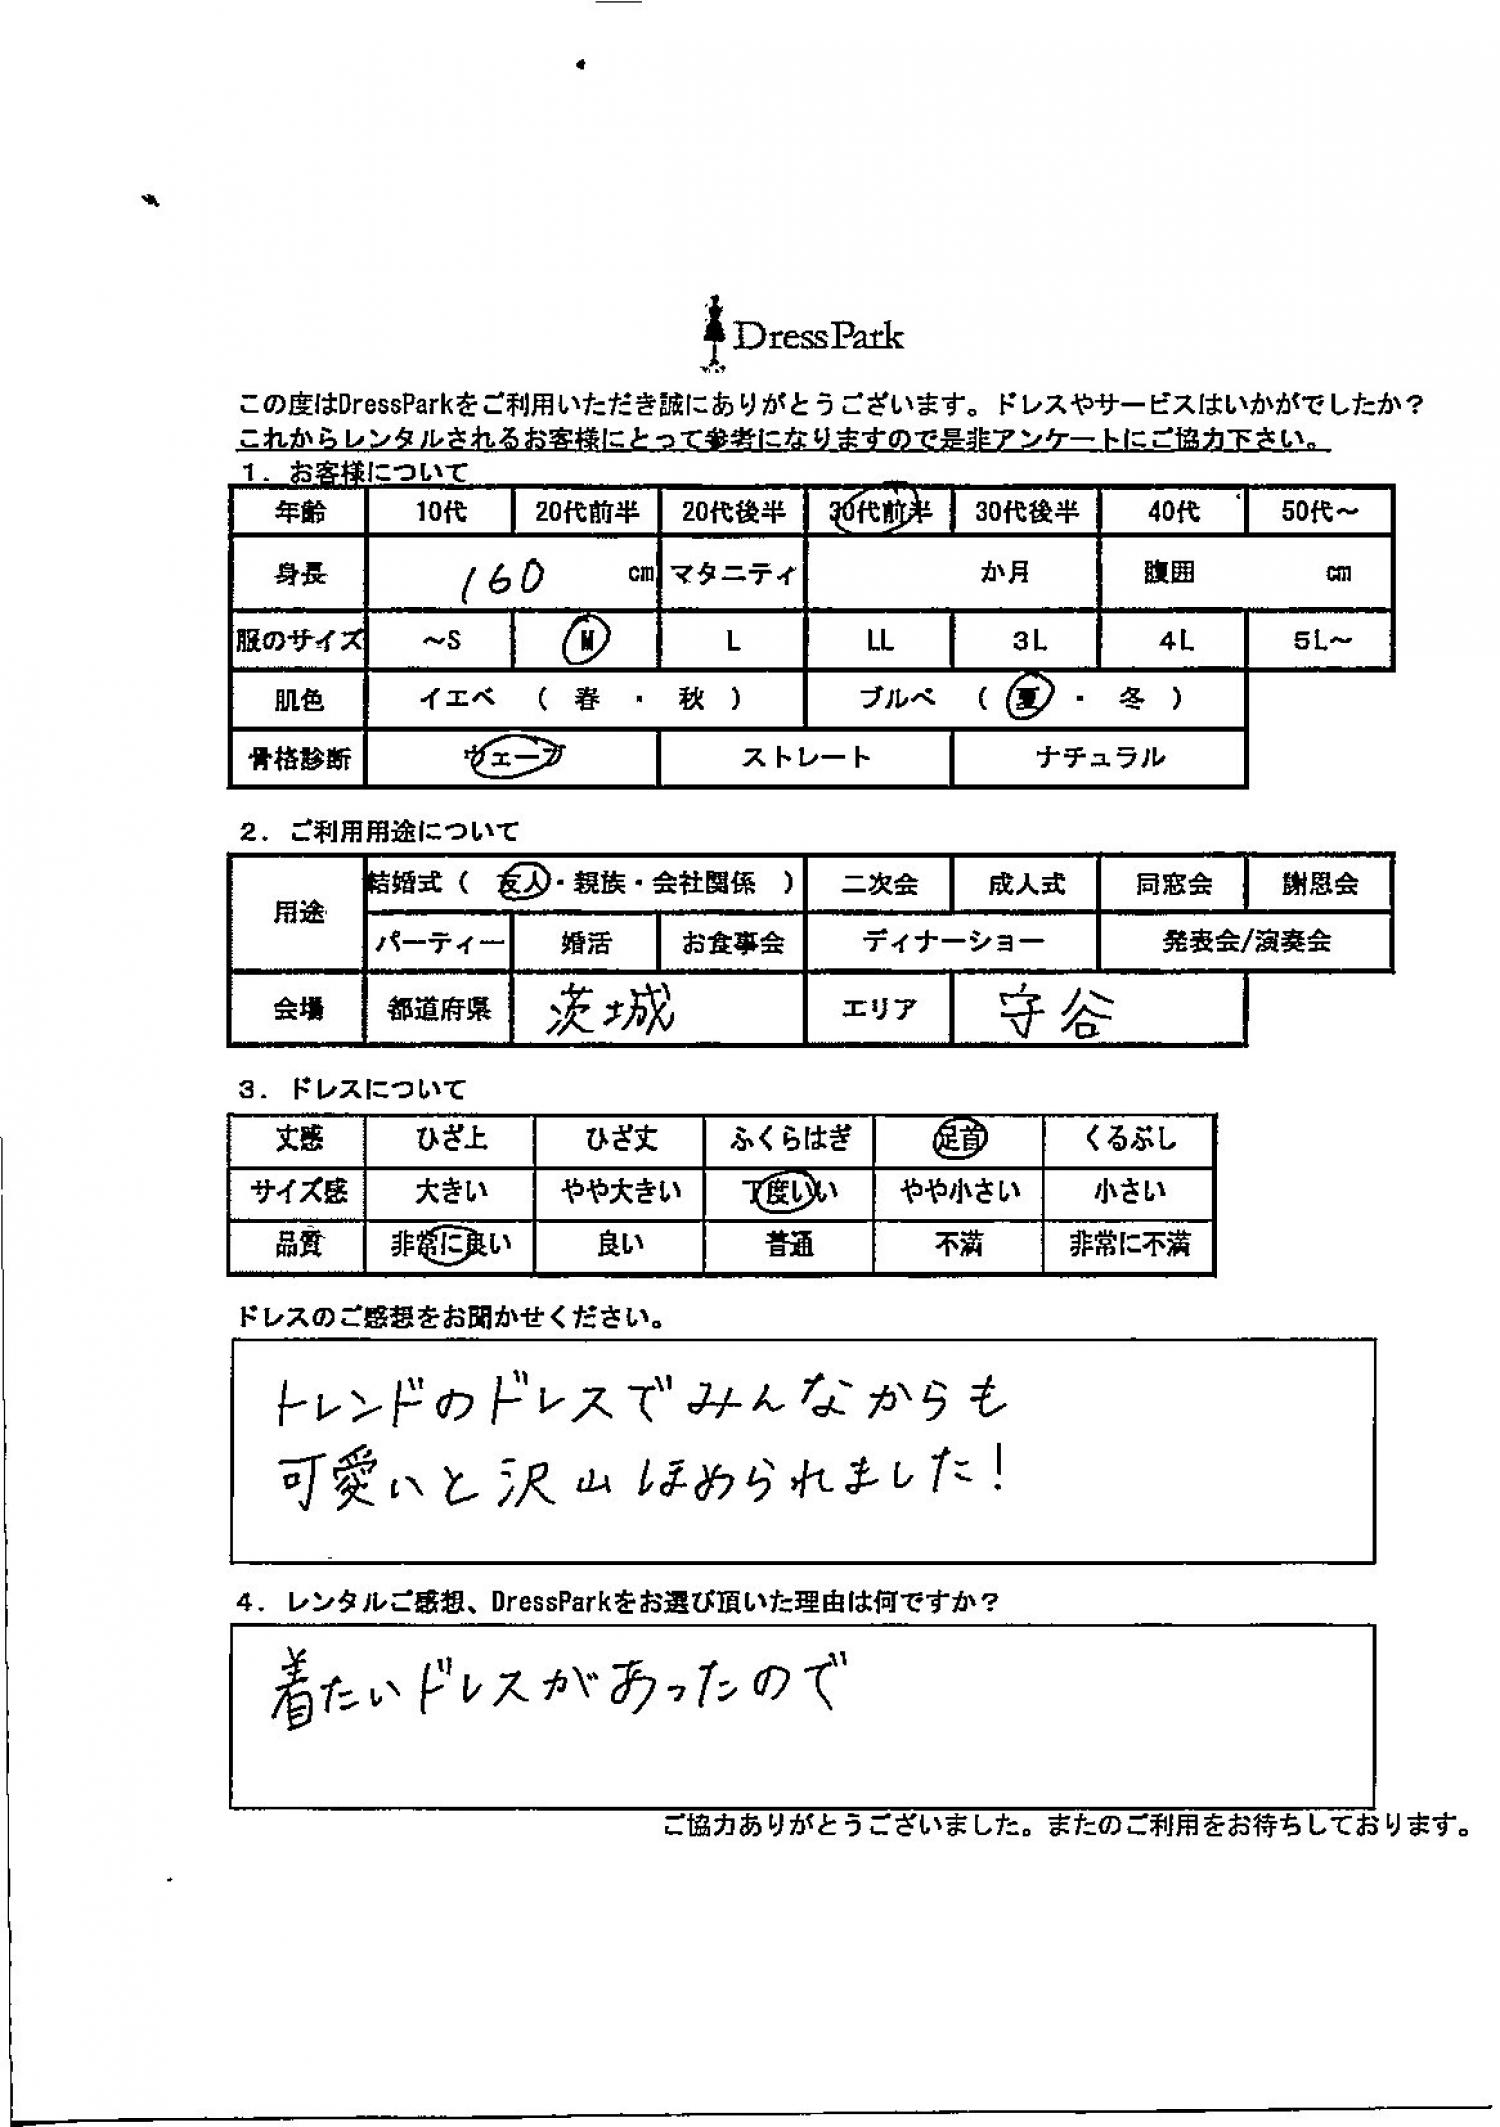 DressPark
この度はDressParkをご利用いただき誠にありがとうございます。ドレスやサービスはいかがでしたか？
これからレンタルされるお客様にとって参考になりますので是非アンケートにご協力下さい。
1．お客様について
年齢 10代 20代前半 20代後半 30代前半 30代後半 40代 50代～
身長 160 cm マタニティ か月 腹囲 cm
服のサイズ ～S M L LL 3L 4L 5L～
肌色 イエベ （ 春 ・ 秋 ） ブルベ （ 夏 ・ 冬 ）
骨格診断 ウェーブ ストレート ナチュラル
2．ご利用用途について
用途 結婚式（ 友人・親族・会社関係 ） 二次会 成人式 同窓会 謝恩会
パーティー 婚活 お食事会 ディナーショー 発表会/演奏会
会場 都道府県 茨城 エリア 守谷
3．ドレスについて
丈感 ひざ上 ひざ丈 ふくらはぎ 足首 くるぶし
サイズ感 大きい やや大きい 丁度いい やや小さい 小さい
品質 非常に良い 良い 普通 不満 非常に不満
ドレスのご感想をお聞かせください。
トレンドのドレスでみんなからも
可愛いと沢山ほめられました！
4．レンタルご感想、DressParkをお選び頂いた理由は何ですか？
着たいドレスがあったので
ご協力ありがとうございました。またのご利用をお待ちしております。